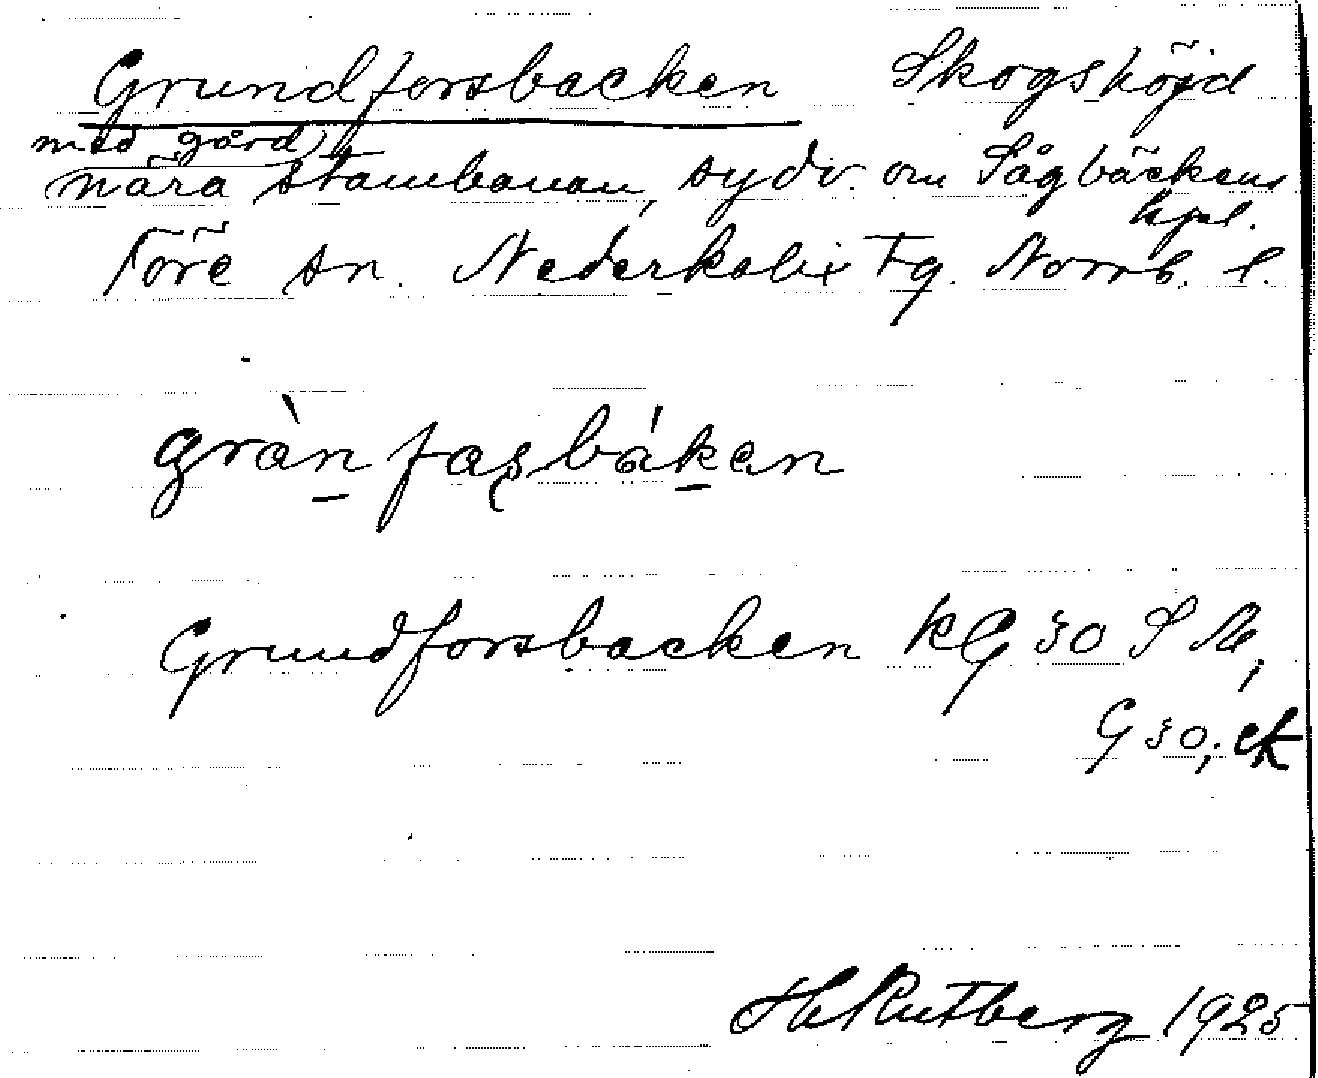 Grundforsbacken Skogshöjd
med gård,
nära stambanan, sydv. om Sågbäckens
hpl.
Töre sn. Nederkalix Tg. Norrb. l.
grànfas̨báken
Grundforsbacken KG 30 S M,
G 30; ek
H Rutberg 1925